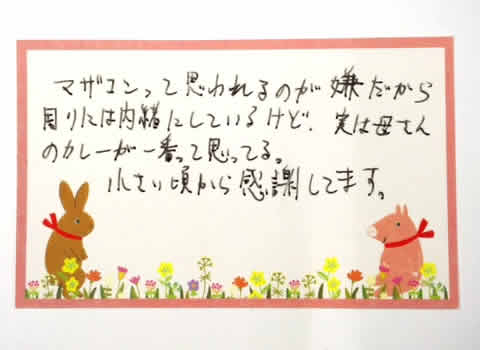 マザコンって思われるのが嫌だから
周りには内緒にしているけど、実は母さん
のカレーが一番って思ってる。
小さい頃から感謝してます。